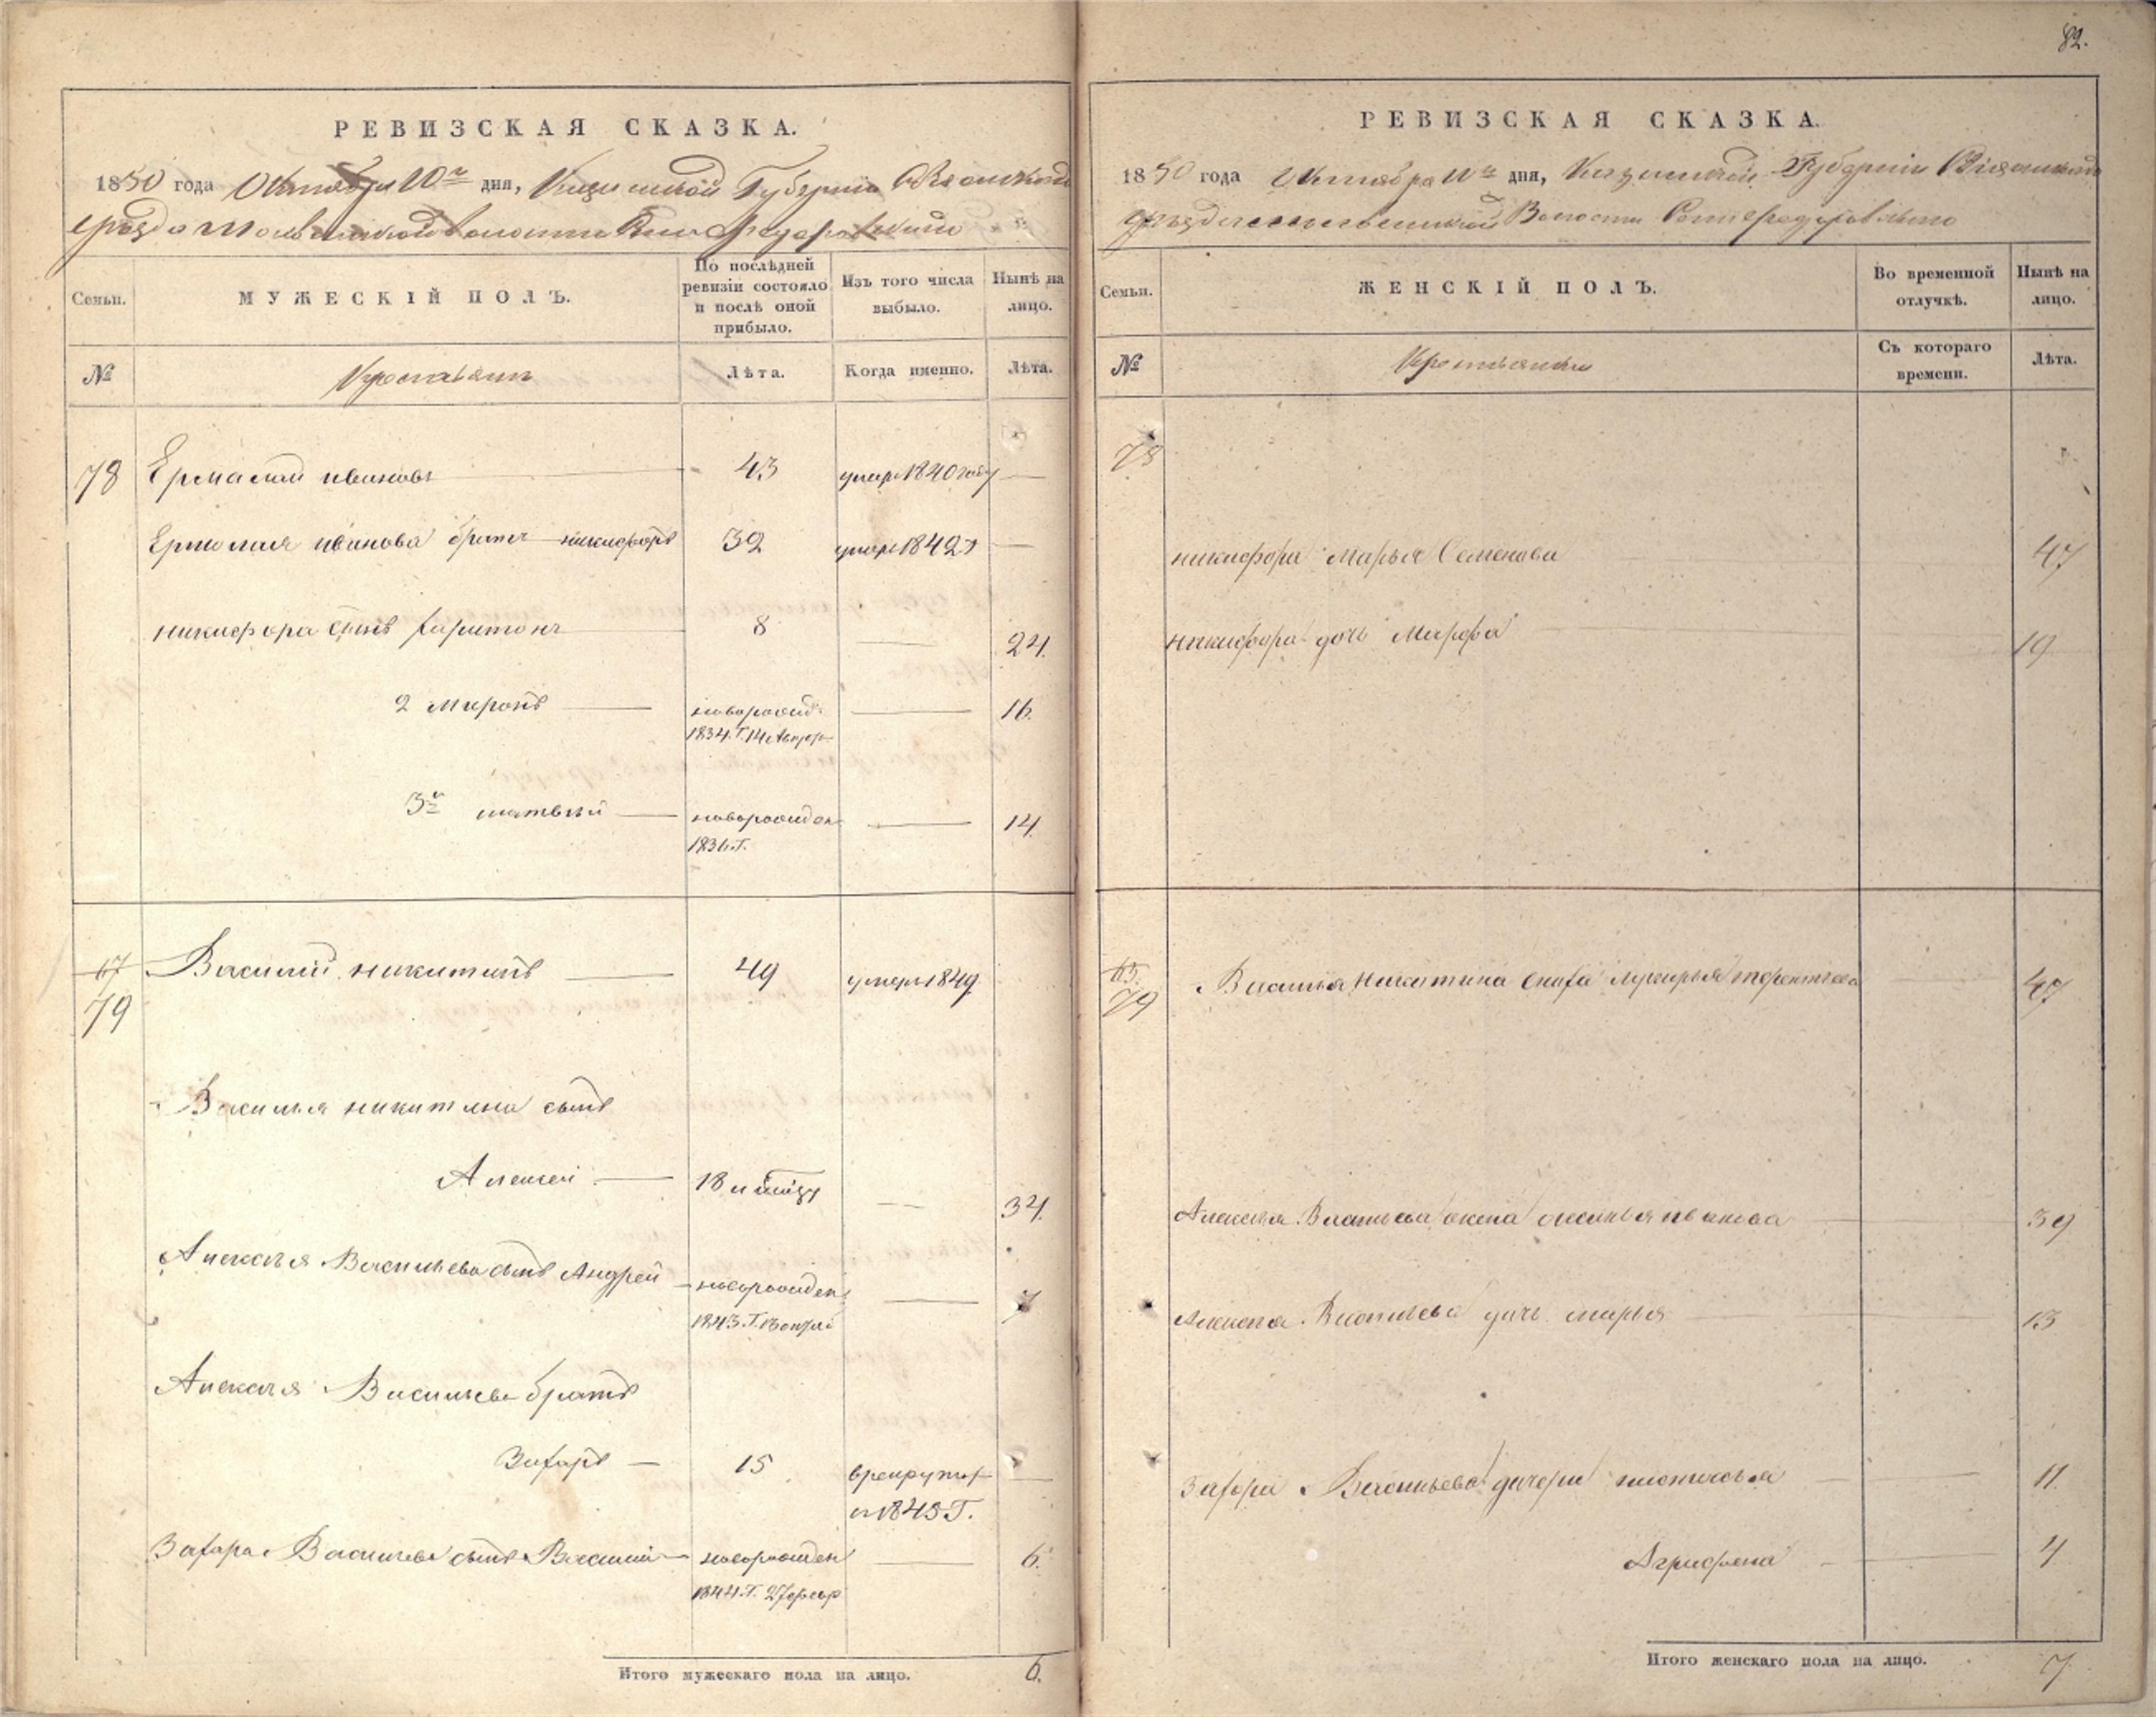 82.
РЕВИЗСКАЯ СКАЗКА.
1850 года Октября 10го дня, Казанской Губернiи
уезда волости
Семьи.
МУЖЕСКІЙ ПОЛЪ.
По послѣдней ревизіи состояло и послѣ оной прибыло.
Изъ того числа выбыло.
Нынѣ на лицо.
№
Крестьяне
Лѣта.
Когда именно.
Лѣта.
78 Ермолай ивановъ 43 умеръ 1840 году
Ермолая иванова братъ никифоръ 32 умеръ 1842
никифора сынъ харитонъ 8 24.
2 Миронъ новорожд. 16.
1834.Г. 14
3й матвѣй новорожден 14.
1836.Г.
67 Василий никитинъ 49 умеръ 1849.
79
Василья никитина сынъ
Алексей 18 34.
Алексѣя Васильева сынъ Андрей новорожден 7
1843.Г.
Алексѣя Васильева братъ
Захаръ 15 врекруты
в 1845 Г.
Захара Васильева сынъ Василий новорожден 6.
1844.Г. 27 февр
Итого мужескаго пола на лицо. 6.
РЕВИЗСКАЯ СКАЗКА.
1850 года Октября дня, Казанской Губернiи
Волости
Семьи.
ЖЕНСКІЙ ПОЛЪ.
Во временной отлучкѣ.
Нынѣ на лицо.
№
Крестьянки
Съ котораго времени.
Лѣта.
78
никифора Марья Семенова 47
никифора дочь Марфа 19
65.
79 Василья Никитина сноха лукерья терентьева 47
Алексѣя Васильева жена иванова 39
Алексѣя Васильева дочь марья 13
Захара Васильева дочери настасья 11.
Агрифена 4
Итого женскаго пола на лицо. 7